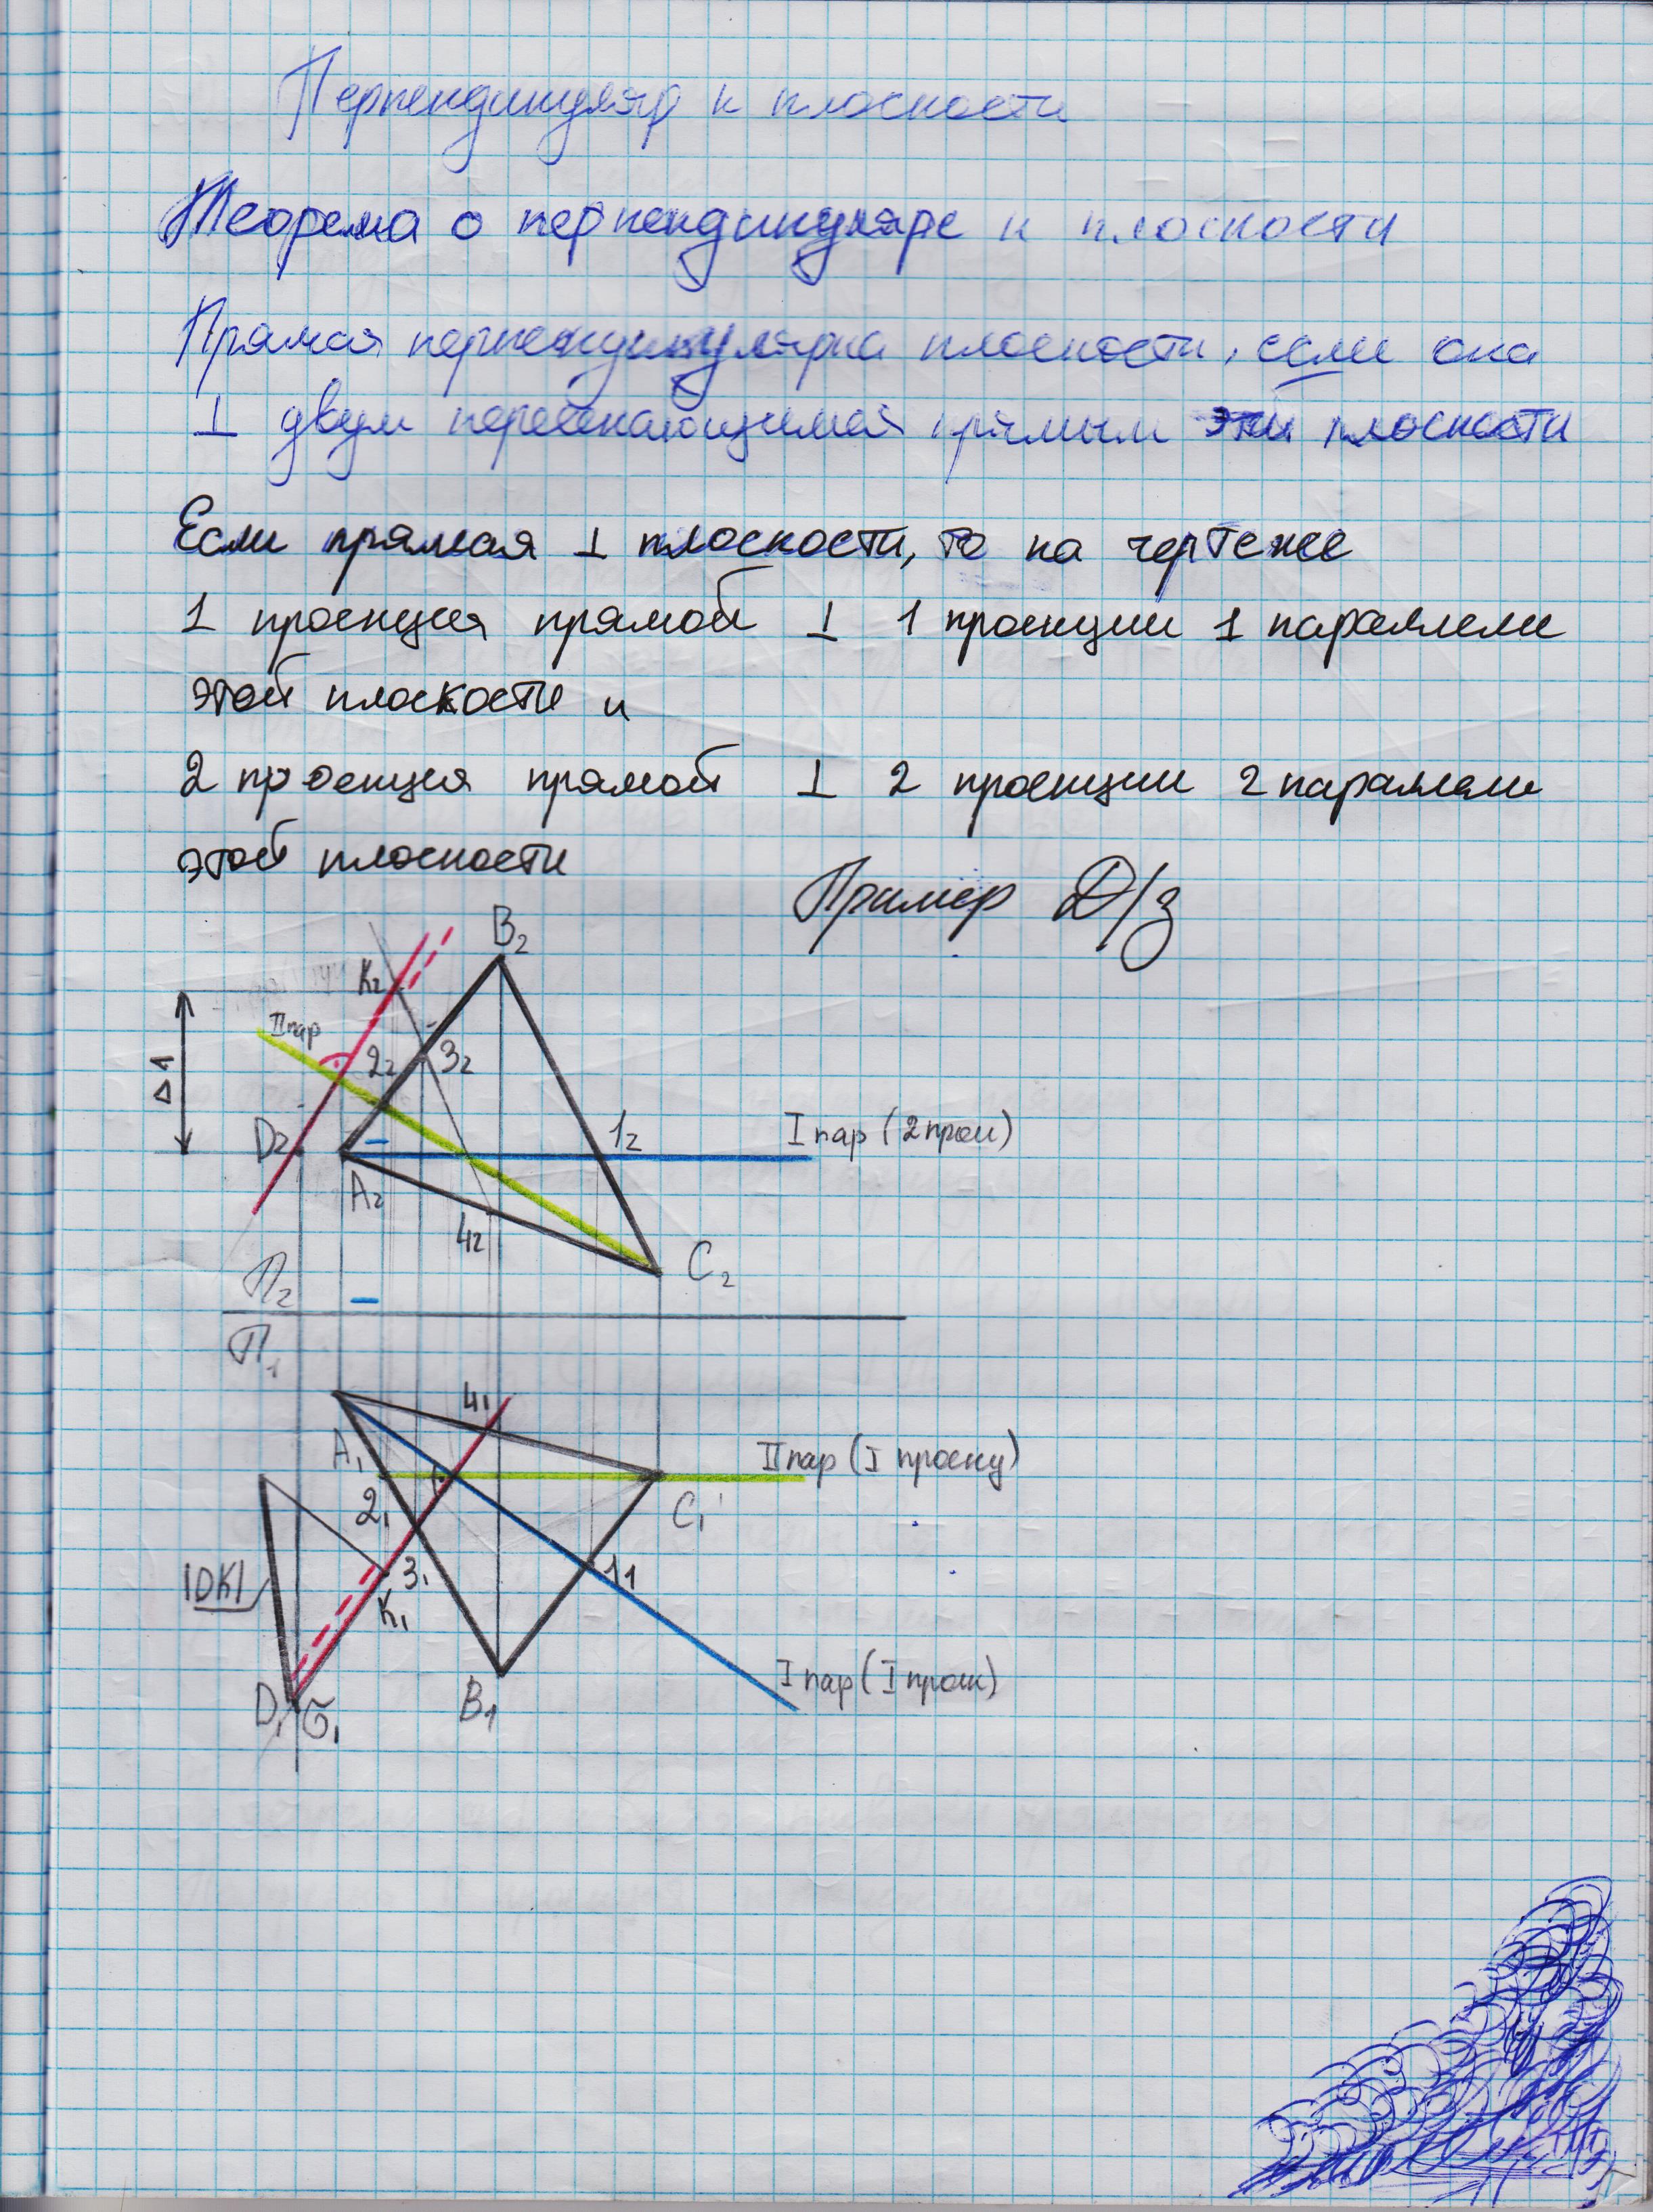 Перпендикуляр к плоскости
Теорема о перпендикуляре к плоскости
Прямая перпендикулярна плоскости, если она
⊥ двум пересекающимся прямым этой плоскости
Если прямая ⊥ плоскости, то на чертеже
1 проекция прямой ⊥ 1 проекции 1 параллели
этой плоскости и
2 проекция прямой ⊥ 2 проекции 2 параллели
этой плоскости
Пример Д/з
B₂
K₂
II пар
2₂ 3₂
Δ1
D₂ 1₂ I пар (2 прои)
A₂
4₂
C₂
П₂
П₁
4₁
A₁ II пар (I проекц)
2₁ C₁
|DK| 3₁ 1₁
K₁
I пар (I проек)
D₁ B₁